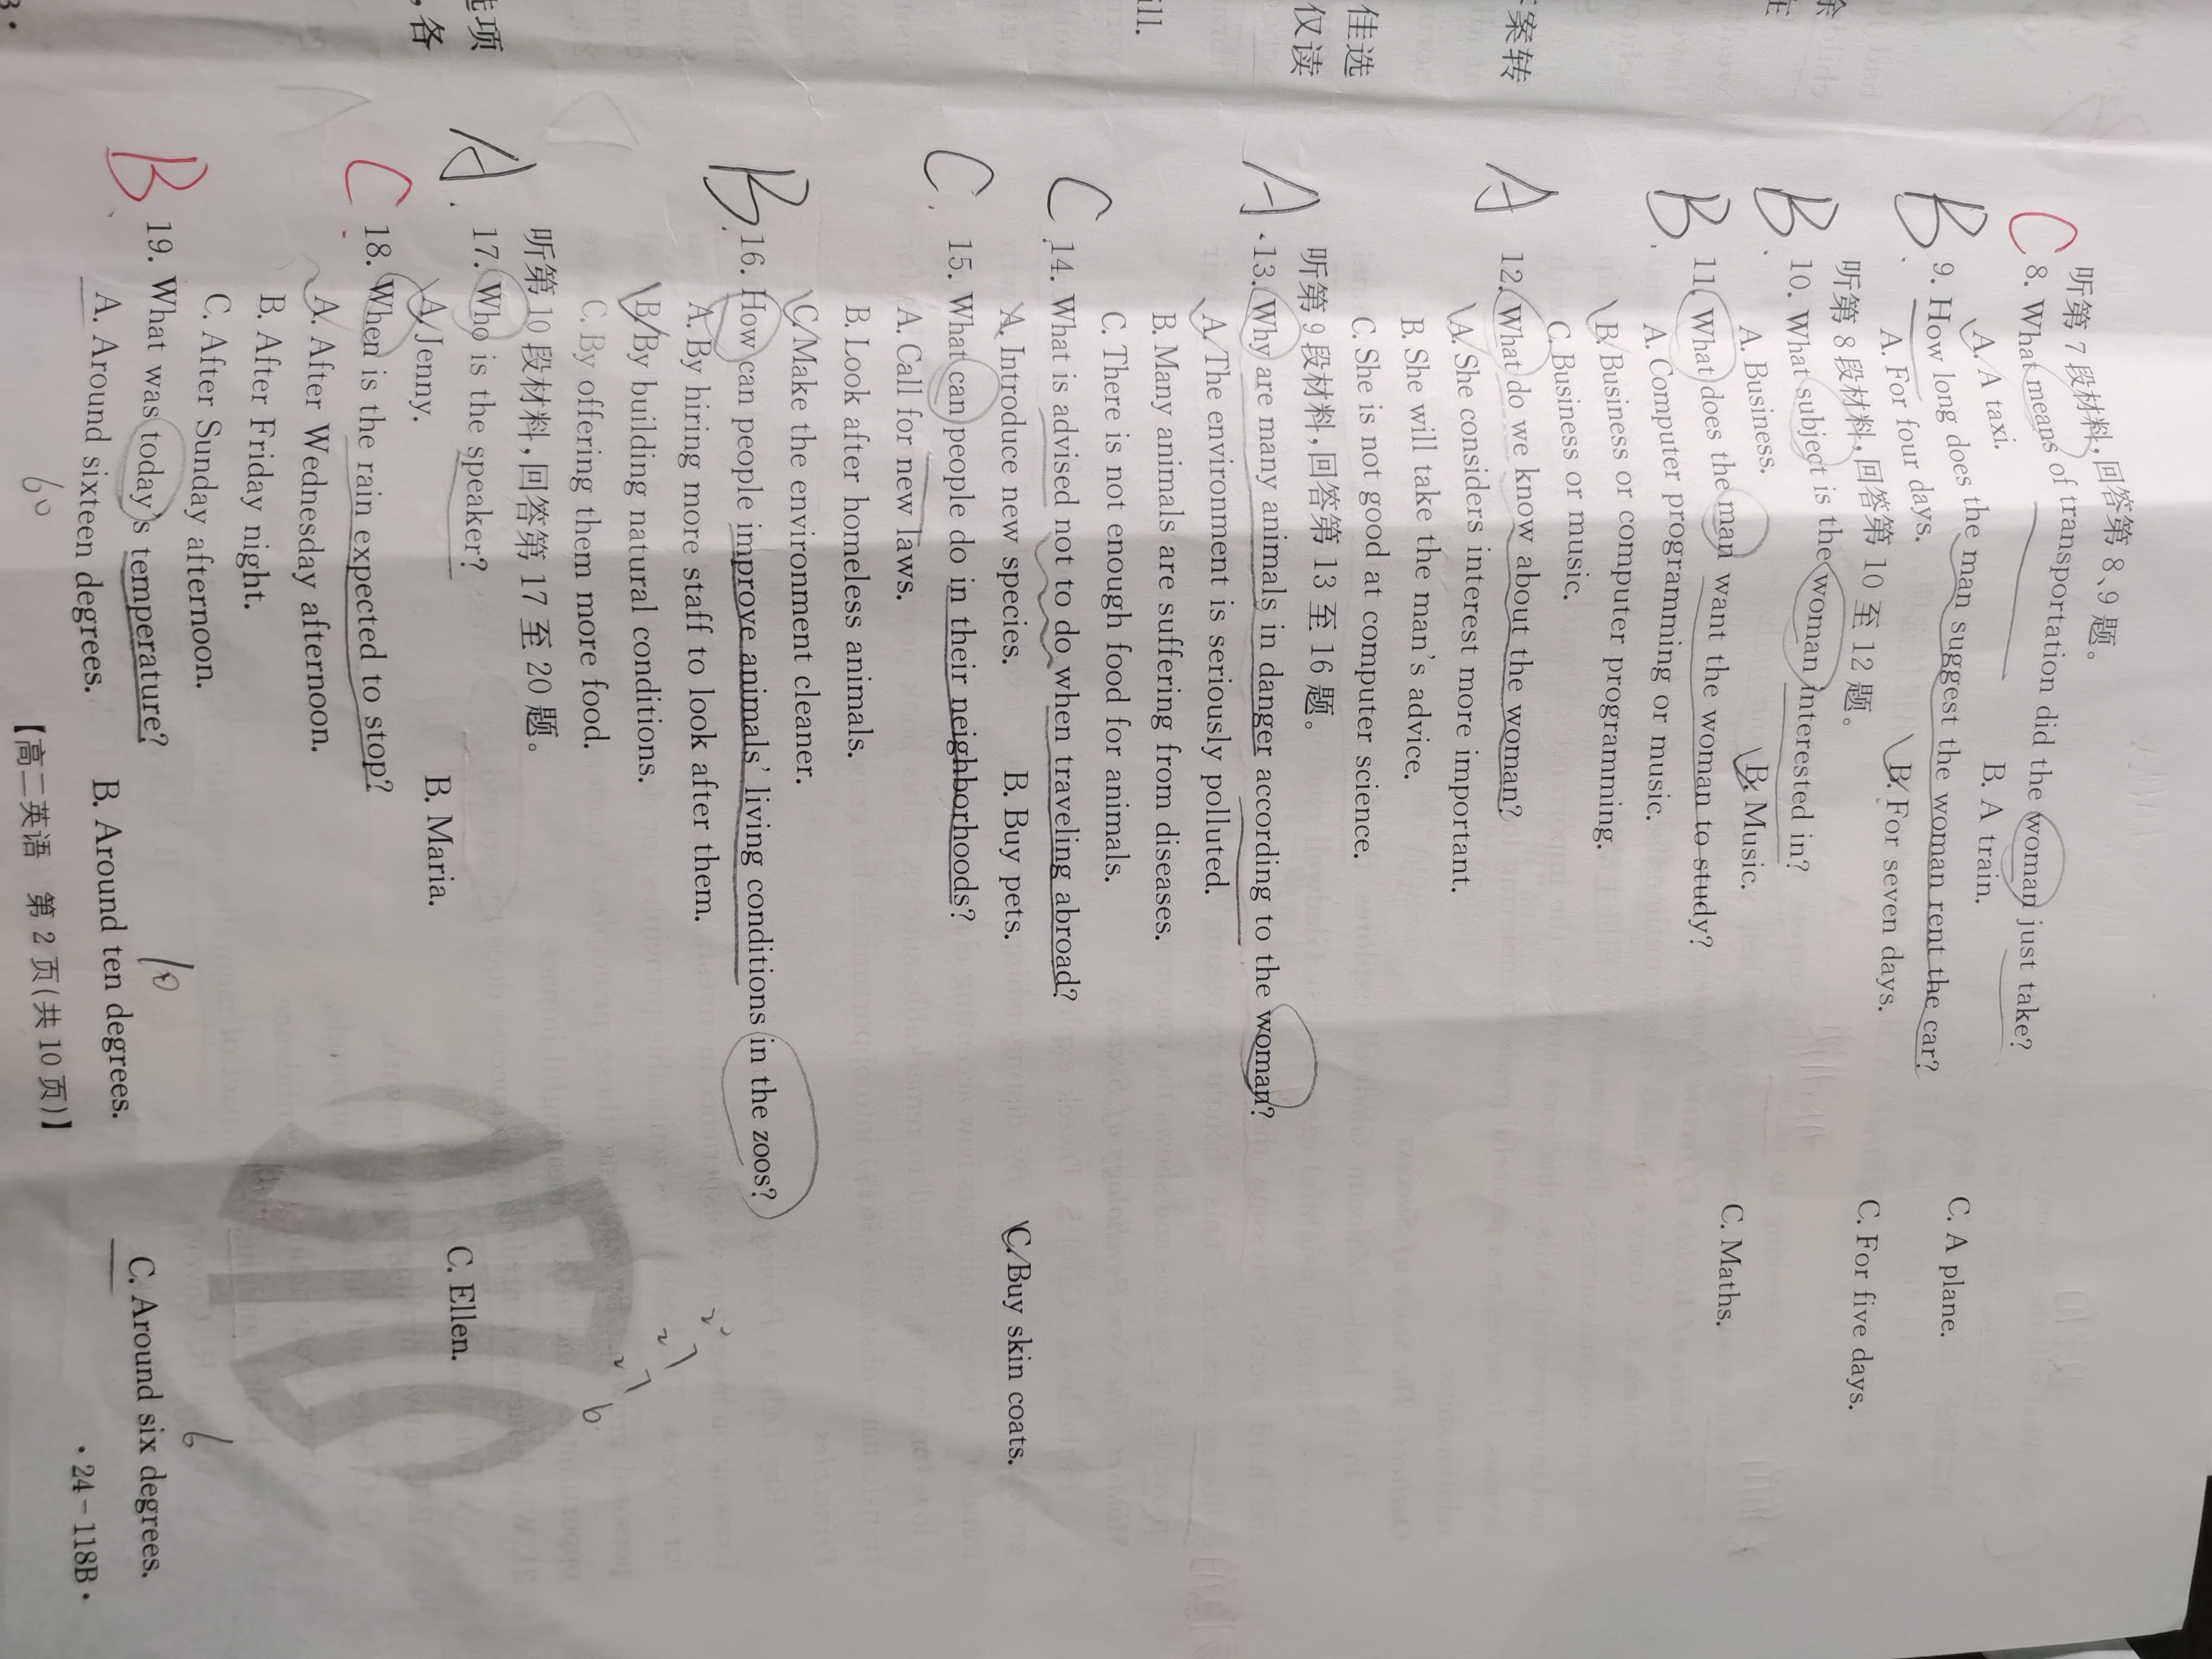 听第 7 段材料,回答第 8、9 题。
C 8. What means of transportation did the woman just take?
A. A taxi. B. A train. C. A plane.
B 9. How long does the man suggest the woman rent the car?
A. For four days. B. For seven days. C. For five days.
听第 8 段材料,回答第 10 至 12 题。
B 10. What subject is the woman interested in?
A. Business. B. Music. C. Maths.
B 11. What does the man want the woman to study?
A. Computer programming or music.
B. Business or computer programming.
C. Business or music.
A 12. What do we know about the woman?
A. She considers interest more important.
B. She will take the man's advice.
C. She is not good at computer science.
听第 9 段材料,回答第 13 至 16 题。
A 13. Why are many animals in danger according to the woman?
A. The environment is seriously polluted.
B. Many animals are suffering from diseases.
C. There is not enough food for animals.
C 14. What is advised not to do when traveling abroad?
A. Introduce new species. B. Buy pets. C. Buy skin coats.
C 15. What can people do in their neighborhoods?
A. Call for new laws.
B. Look after homeless animals.
C. Make the environment cleaner.
B 16. How can people improve animals' living conditions in the zoos?
A. By hiring more staff to look after them.
B. By building natural conditions.
C. By offering them more food.
听第 10 段材料,回答第 17 至 20 题。
A 17. Who is the speaker?
A. Jenny. B. Maria. C. Ellen.
C 18. When is the rain expected to stop?
A. After Wednesday afternoon.
B. After Friday night.
C. After Sunday afternoon.
B 19. What was today's temperature?
10 6
A. Around sixteen degrees. B. Around ten degrees. C. Around six degrees.
60
【高二英语 第 2 页(共 10 页)】 ·24-118B·
案转
佳选
仅读
ill.
选项
,各